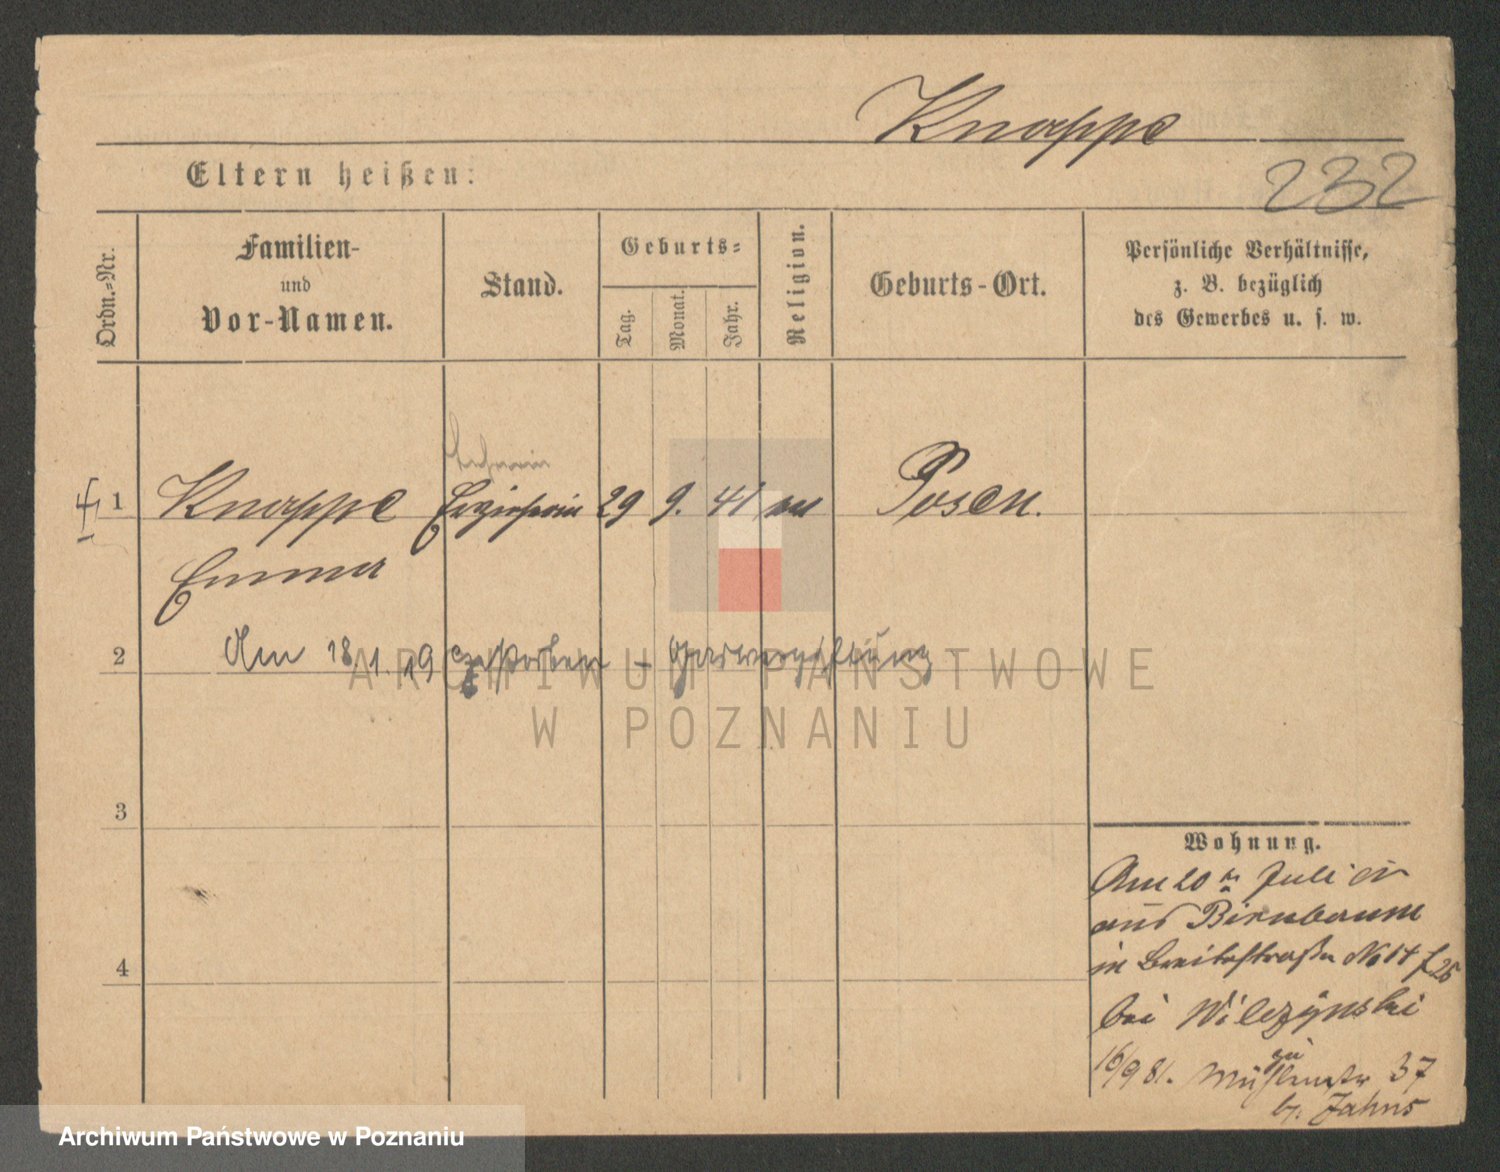 Knappe
232
Eltern heißen:
Ordn.=Nr.
Familien-
und
Vor-Namen.
Stand.
Geburts=
Tag.
Monat.
Jahr.
Religion.
Geburts-Ort.
Persönliche Verhältnisse,
z. B. bezüglich
des Gewerbes u. s. w.
Lehrerin
1 Knappe Erzieherin 29 9. 41 Posen.
Emma
2 Am 18 1. 19 gestorben - Gasvergiftung
ARCHIWUM PAŃSTWOWE
W POZNANIU
3
Wohnung.
Am 20 Juli
aus Birnbaum
in Breitestraße No 14
bei Wilczynski
4
16/9 81. zu Mühlenstr 37
b. Jahns
Archiwum Państwowe w Poznaniu